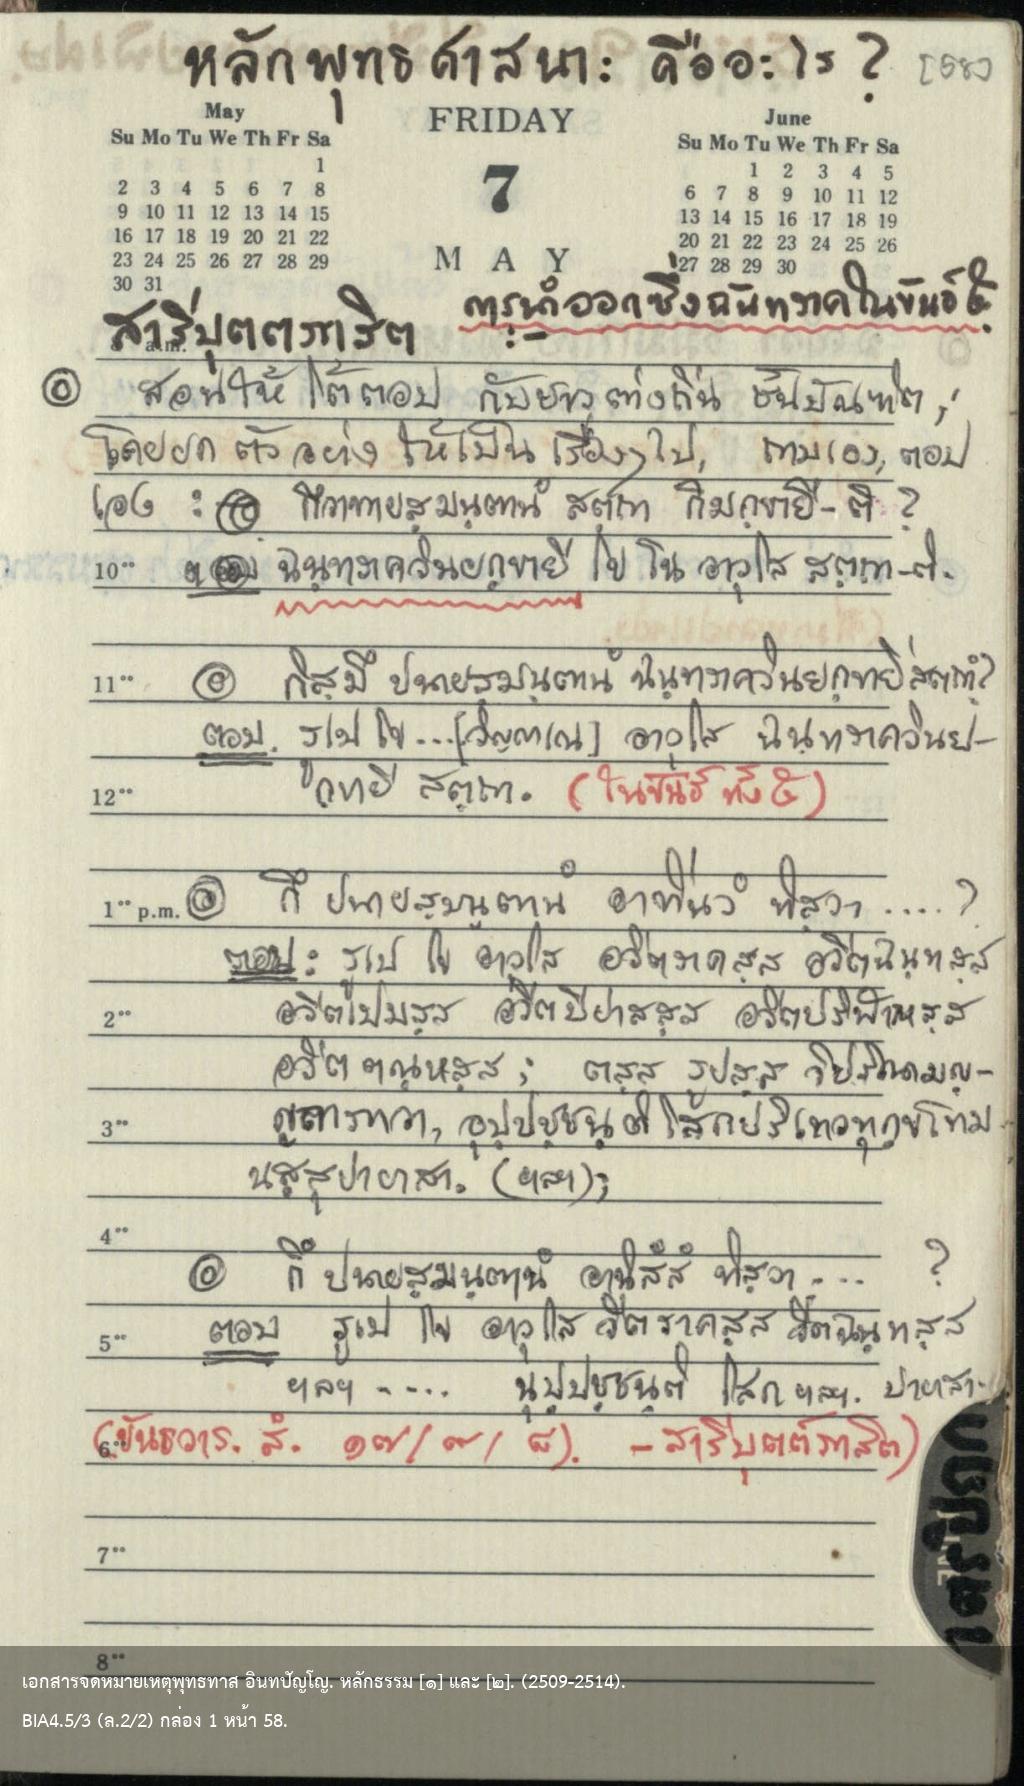 หลักพุทธศาสนา: คืออะไร ? [58]
May
Su Mo Tu We Th Fr Sa
1
2 3 4 5 6 7 8
9 10 11 12 13 14 15
16 17 18 19 20 21 22
23 24 25 26 27 28 29
30 31
FRIDAY
7
MAY
June
Su Mo Tu We Th Fr Sa
1 2 3 4 5
6 7 8 9 10 11 12
13 14 15 16 17 18 19
20 21 22 23 24 25 26
27 28 29 30
การนำออกซึ่งฉันทราคในขันธ์ ๕
สารีปุตตภาสิต :-
a.m.
สอนให้ โต้ตอบ กับชาวต่างถิ่น ชั้นบัณฑิต;
โดยยกตัวอย่าง ให้เป็นเรื่องๆไป, ถามเอง, ตอบ
เอง : กึวาทายสฺมนฺตานํ สตฺถา กิมกฺขายี-ติ ?
10°° ตอบ ฉนฺทราควินยกฺขายี โข โน อาวุโส สตฺถา-ติ.
11°° กิสฺมึ ปนายสฺมนฺตานํ ฉนฺทราควินยกฺขายี สตฺถา?
ตอบ. รูเป โข...[วิญฺญาเณ] อาวุโส ฉนฺทราควินย-
12°° กฺขายี สตฺถา. (ในขันธ์ ทั้ง ๕)
1°° p.m. กึ ปนายสฺมนฺตานํ อาทีนวํ ทิสฺวา ....?
ตอบ: รูเป โข อาวุโส อวีตราคสฺส อวีตฉนฺทสฺส
2°° อวีตเปมสฺส อวีตปิปาสสฺส อวีตปริฬาหสฺส
อวีตตณฺหสฺส; ตสฺส รูปสฺส วิปริณามญฺ-
3°° ญถาภาวา, อุปฺปชฺชนฺติ โสกปริเทวทุกฺขโทม
นสฺสุปายาสา. (ฯลฯ);
4°°
กึ ปนายสฺมนฺตานํ อานิสํสํ ทิสฺวา .... ?
5°° ตอบ รูเป โข อาวุโส วีตราคสฺส วีตฉนฺทสฺส
ฯลฯ ..... นุปฺปชฺชนฺติ โสก ฯลฯ. ปายาสา.
6°° (ขันธวาร. สํ. ๑๗/๙/๘). -สารีปุตต์ภาสิต)
7°°
8°°
เอกสารจดหมายเหตุพุทธทาส อินทปัญโญ. หลักธรรม [๑] และ [๒]. (2509-2514).
BIA4.5/3 (ล.2/2) กล่อง 1 หน้า 58.